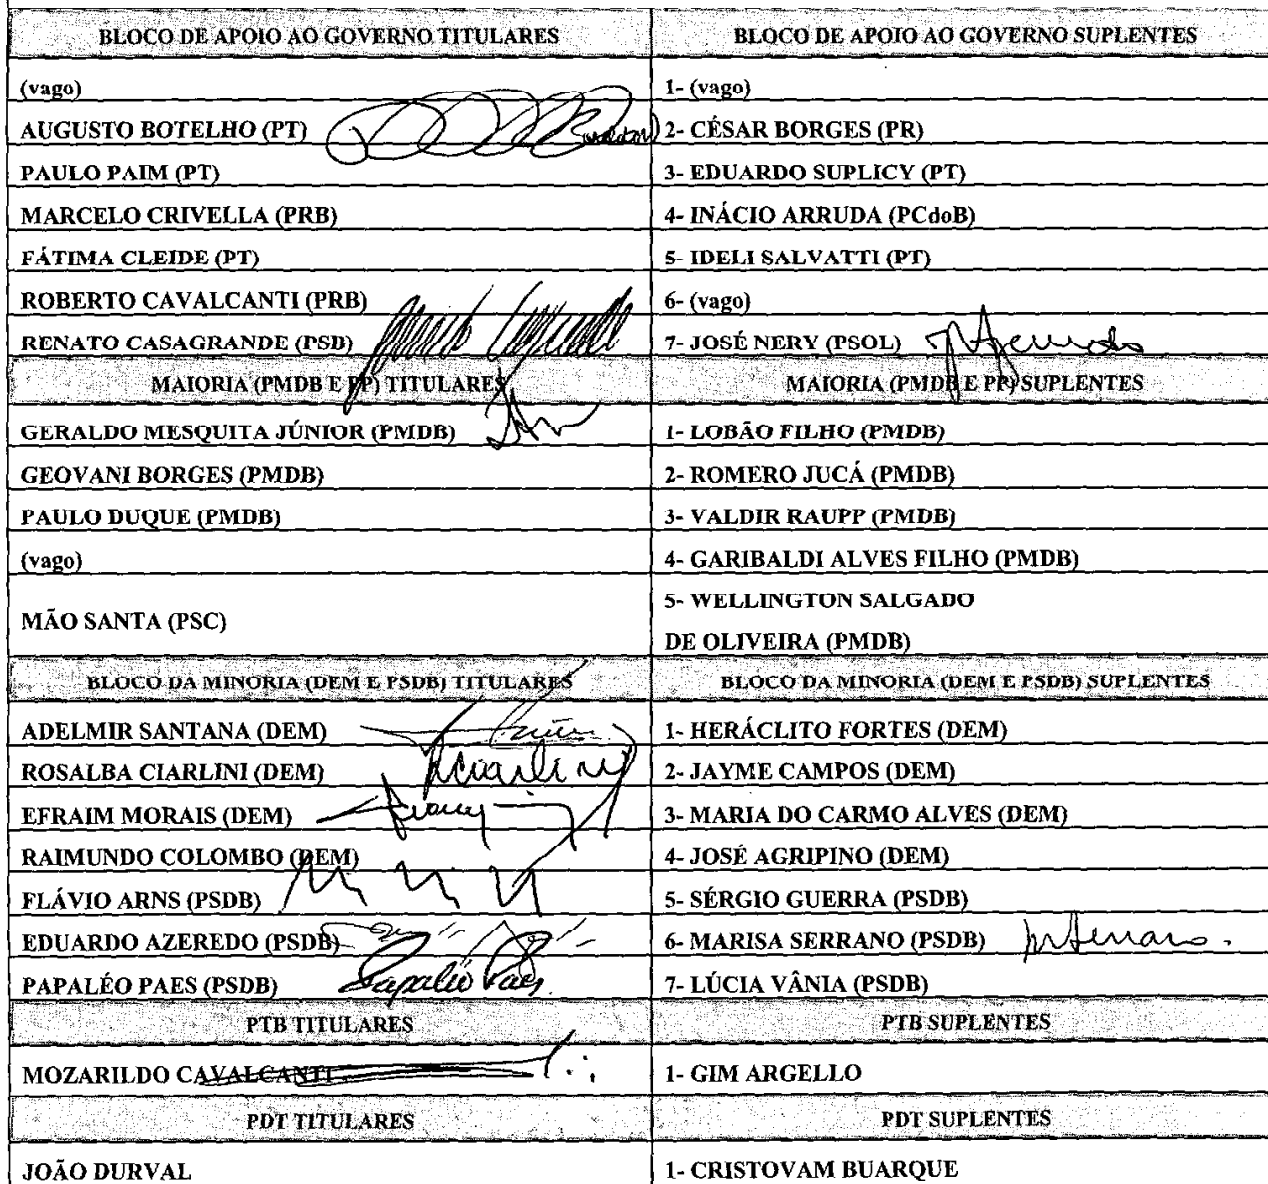 BLOCO DE APOIO AO GOVERNO TITULARES
BLOCO DE APOIO AO GOVERNO SUPLENTES
(vago)
1- (vago)
AUGUSTO BOTELHO (PT)
2- CÉSAR BORGES (PR)
PAULO PAIM (PT)
3- EDUARDO SUPLICY (PT)
MARCELO CRIVELLA (PRB)
4- INÁCIO ARRUDA (PCdoB)
FÁTIMA CLEIDE (PT)
5- IDELI SALVATTI (PT)
ROBERTO CAVALCANTI (PRB)
6- (vago)
RENATO CASAGRANDE (PSB)
7- JOSÉ NERY (PSOL)
MAIORIA (PMDB E PP) TITULARES
MAIORIA (PMDB E PP) SUPLENTES
GERALDO MESQUITA JÚNIOR (PMDB)
1- LOBÃO FILHO (PMDB)
GEOVANI BORGES (PMDB)
2- ROMERO JUCÁ (PMDB)
PAULO DUQUE (PMDB)
3- VALDIR RAUPP (PMDB)
(vago)
4- GARIBALDI ALVES FILHO (PMDB)
MÃO SANTA (PSC)
5- WELLINGTON SALGADO
DE OLIVEIRA (PMDB)
BLOCO DA MINORIA (DEM E PSDB) TITULARES
BLOCO DA MINORIA (DEM E PSDB) SUPLENTES
ADELMIR SANTANA (DEM)
1- HERÁCLITO FORTES (DEM)
ROSALBA CIARLINI (DEM)
2- JAYME CAMPOS (DEM)
EFRAIM MORAIS (DEM)
3- MARIA DO CARMO ALVES (DEM)
RAIMUNDO COLOMBO (DEM)
4- JOSÉ AGRIPINO (DEM)
FLÁVIO ARNS (PSDB)
5- SÉRGIO GUERRA (PSDB)
EDUARDO AZEREDO (PSDB)
6- MARISA SERRANO (PSDB)
PAPALÉO PAES (PSDB) Papaléo Paes
7- LÚCIA VÂNIA (PSDB)
PTB TITULARES
PTB SUPLENTES
MOZARILDO CAVALCANTI
1- GIM ARGELLO
PDT TITULARES
PDT SUPLENTES
JOÃO DURVAL
1- CRISTOVAM BUARQUE